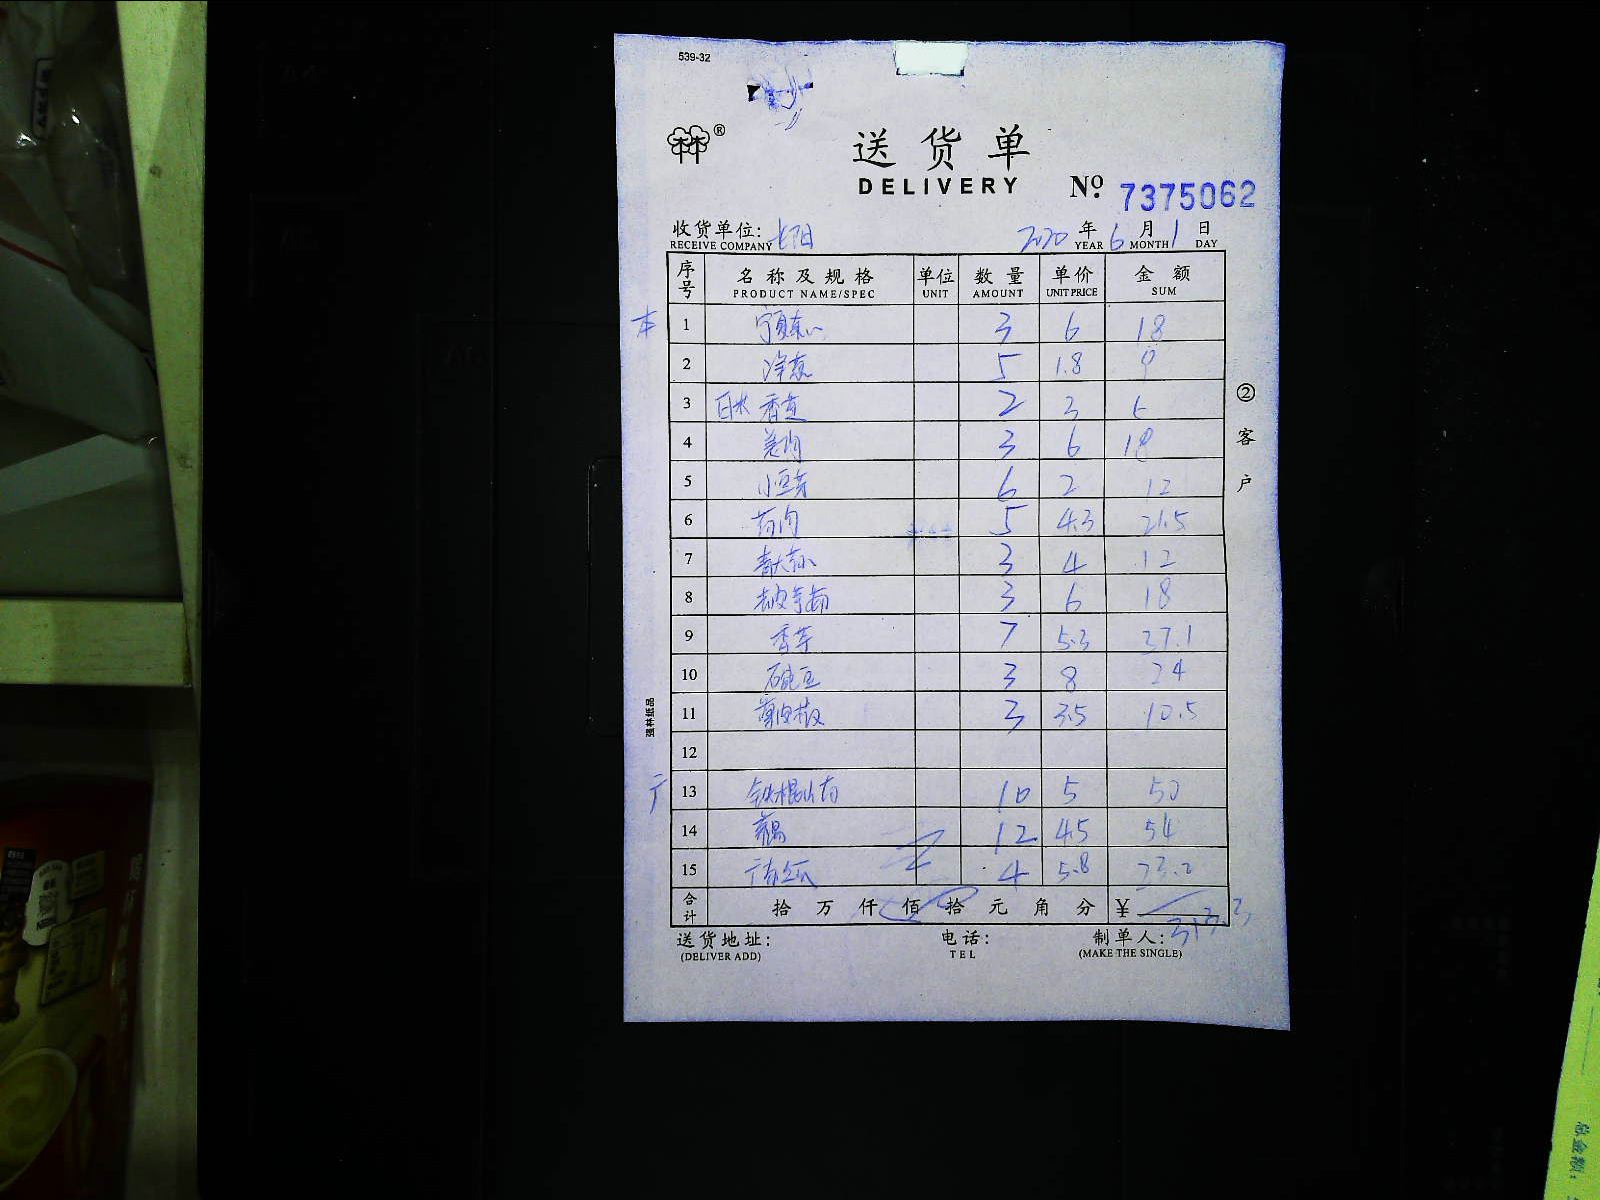 539-32
林®
送货单
DELIVERY № 7375062
收货单位: 2020 年 6 月 1 日
RECEIVE COMPANY YEAR MONTH DAY
序号 名称及规格 单位 数量 单价 金额
PRODUCT NAME/SPEC UNIT AMOUNT UNIT PRICE SUM
本 1 3 6 18
2 净葱 5 1.8 9
3 2 3 6
4 姜肉 3 6 18
5 小豆芽 6 2 12
6 5 4.3 21.5
7 3 4 12
8 3 6 18
9 香芋 7 5.3 37.1
10 3 8 24
11 3 3.5 10.5
12
13 铁棍山药 10 5 50
14 藕 12 4.5 54
15 4 5.8 23.2
合计 拾 万 仟 佰 拾 元 角 分 ¥ 313.3
送货地址: 电话: 制单人:
(DELIVER ADD) TEL (MAKE THE SINGLE)
②客户
强林纸品
总金额: